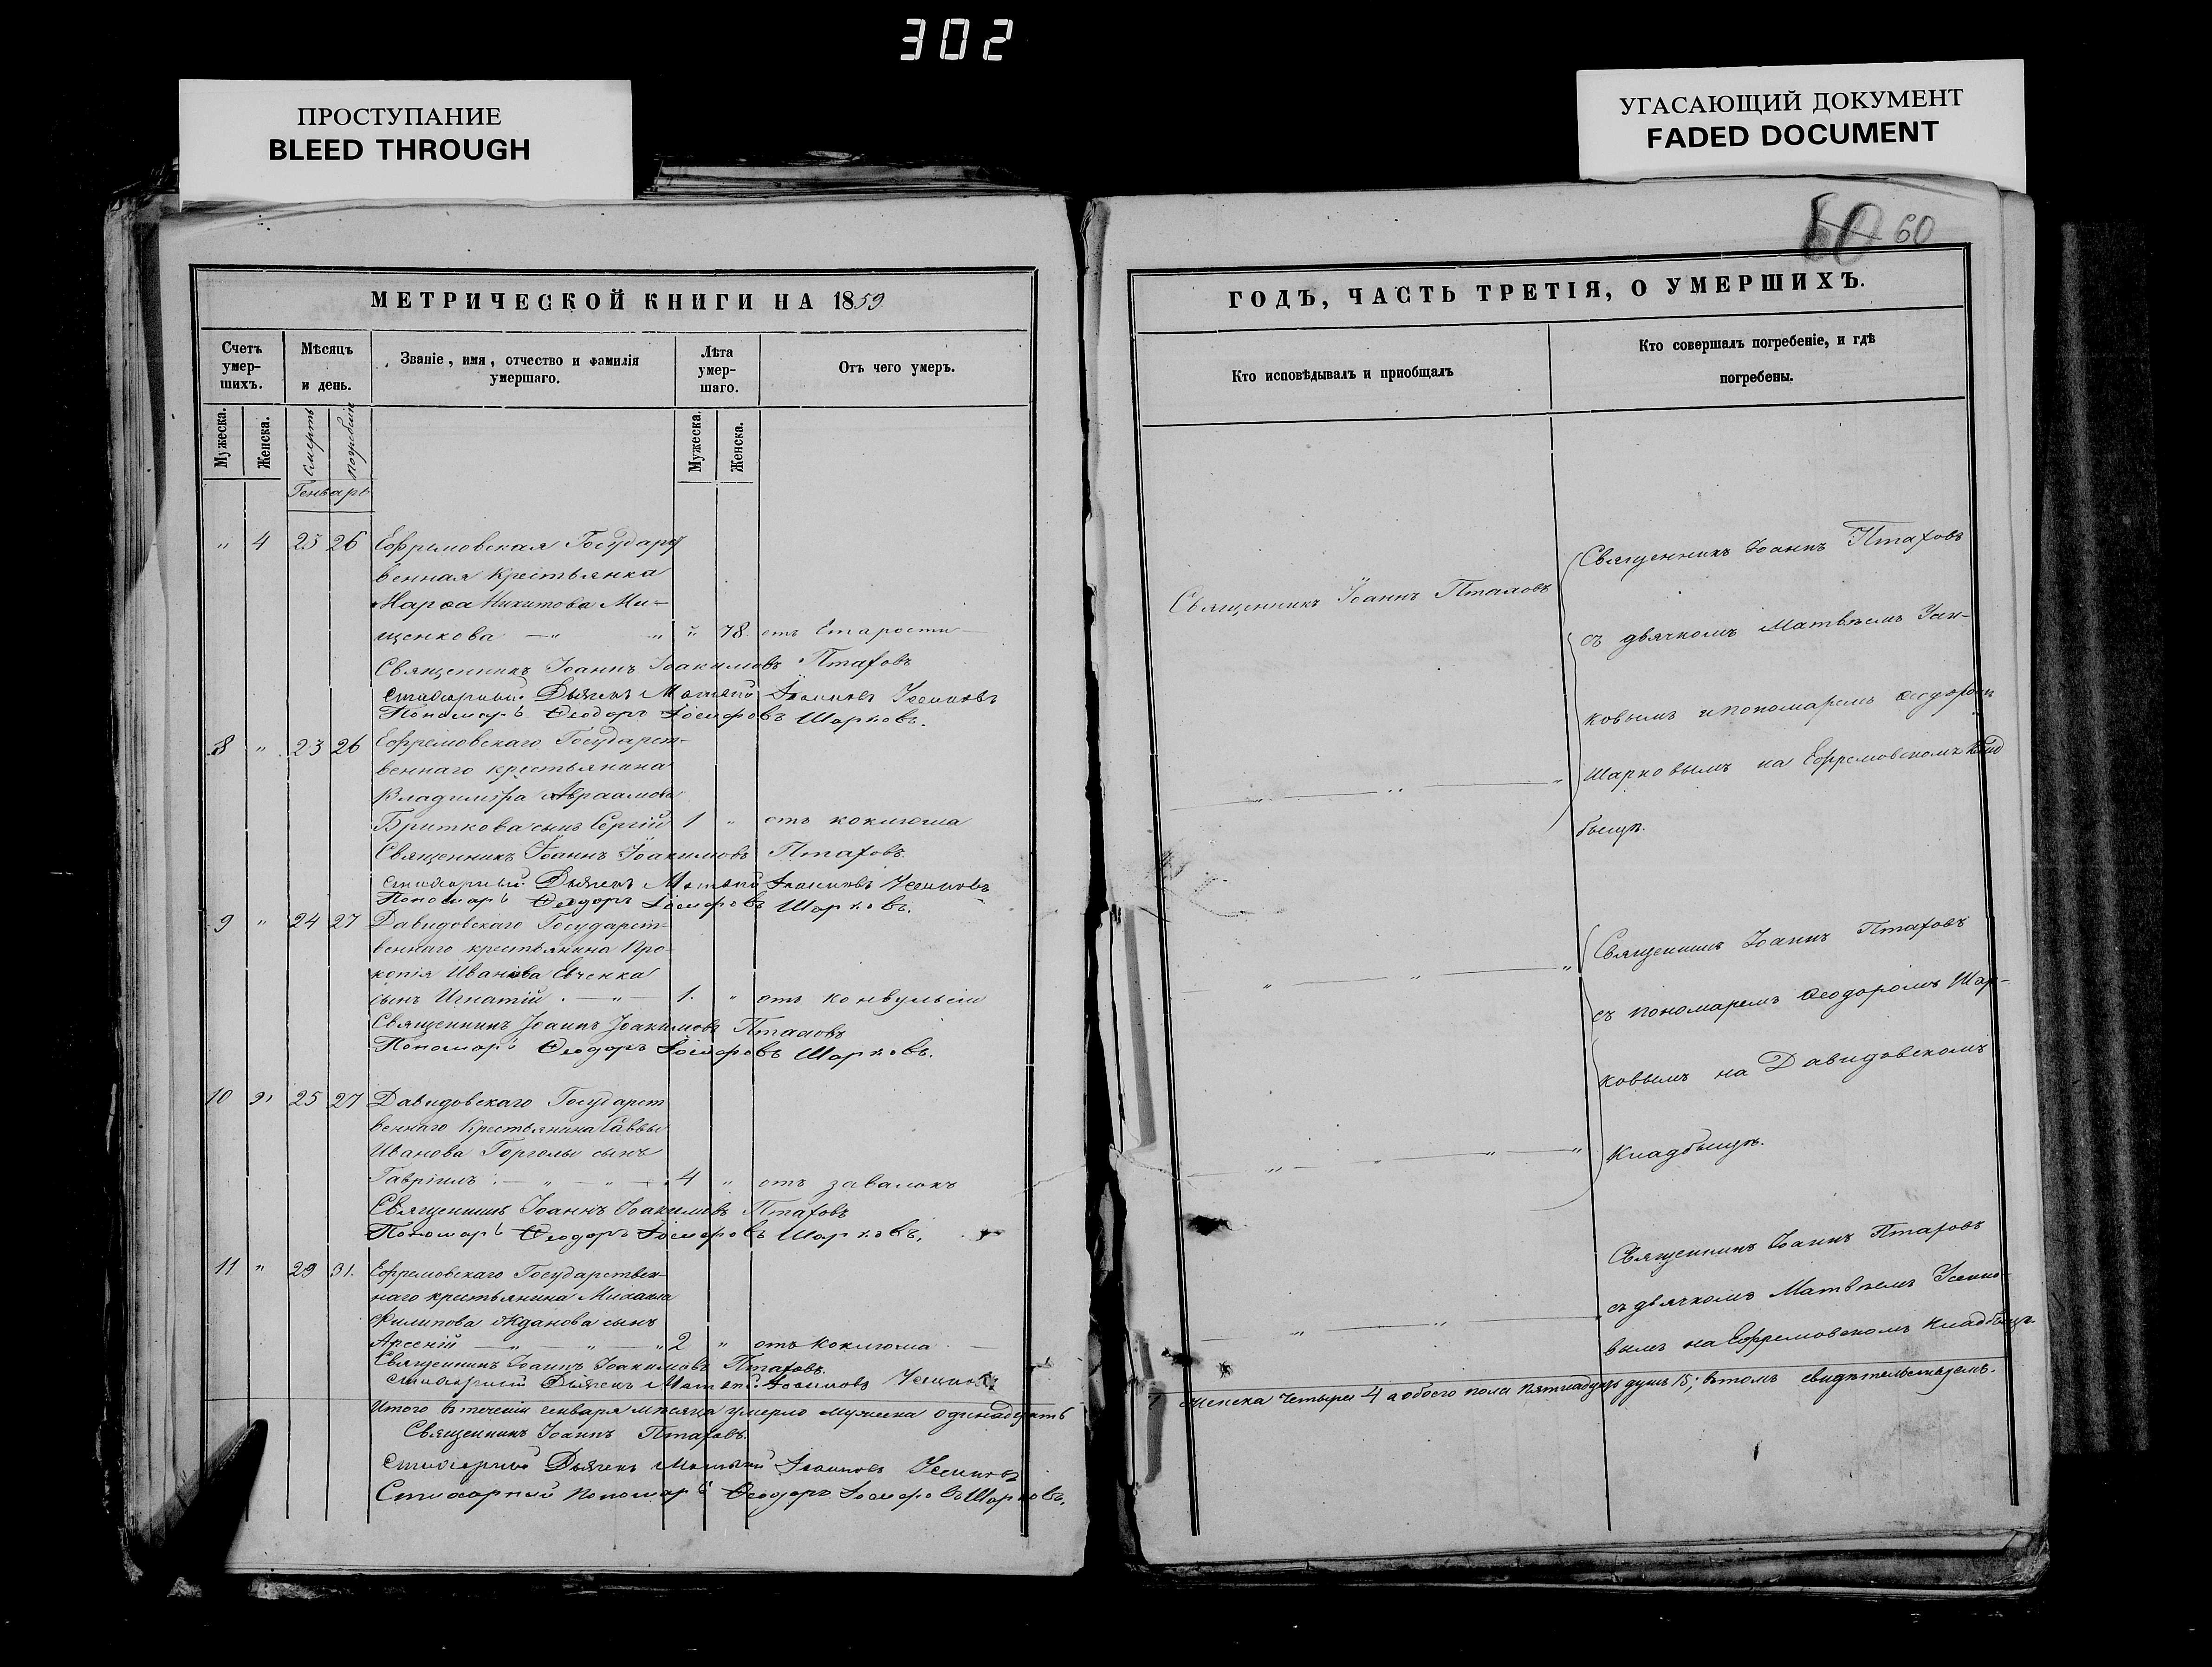 302
ПРОСТУПАНИЕ
BLEED THROUGH
УГАСАЮЩИЙ ДОКУМЕНТ
FADED DOCUMENT
60 60
МЕТРИЧЕСКОЙ КНИГИ НА 1859
Счетъ умер-шихъ.
Мѣсяцъ и день.
Званіе, имя, отчество и фамилія умершаго.
Лѣта умер-шаго.
Отъ чего умеръ.
Мужеска.
Женска.
смерть
погребенія
Мужеска.
Женска.
Генварь
" 4 23 26 Ефремовская Государст
венная крестьянка
Марѳа Никитова Ми-
щенкова — " " " 78. отъ старости —
Священникъ Іоаннъ Іоакимовъ Птаховъ
Стихарный Дьячекъ Матвѣй
Пономарь Ѳеодоръ Іосифовъ Шарковъ.
8 " 23 26 Ефремовскаго Государст-
веннаго крестьянина
Владиміра Авраамова
Бриткова сынъ Сергій 1 " отъ коклюша
Священникъ Іоаннъ Іоакимовъ Птаховъ.
Стихарный Дьячекъ Матвѣй
Пономарь Ѳеодоръ Іосифовъ Шарковъ.
9 " 24 27 Давидовскаго Государст-
веннаго крестьянина Про-
копія Иванова Евченка
сынъ Игнатій. — " — 1. " отъ конвульсіи
Священникъ Іоаннъ Іоакимовъ Птаховъ
Пономарь Ѳеодоръ Іосифовъ Шарковъ.
10 " 25 27 Давидовскаго Государст
веннаго Крестьянина Саввы
Иванова Горголы сынъ
Гавріилъ. — " — " — 4 " отъ завалокъ
Священникъ Іоаннъ Іоакимовъ Птаховъ
Пономарь Ѳеодоръ Іосифовъ Шарковъ.
11 " 29 31. Ефремовскаго Государствен-
наго крестьянина Михаила
Филипова Жданова сынъ
Арсеній — " — " — " 2 " отъ коклюша —
Священникъ Іоаннъ Іоакимовъ Птаховъ.
Стихарный Дьячекъ Матвѣй
Итого въ теченіи генваря мѣсяца умерло мужеска одинадцать
Священникъ Іоаннъ Птаховъ.
Стихарный Дьячекъ Матвѣй
Стихарный Пономарь Ѳеодоръ Іосифовъ Шарковъ.
ГОДЪ, ЧАСТЬ ТРЕТІЯ, О УМЕРШИХЪ.
Кто исповѣдывалъ и приобщалъ
Кто совершалъ погребеніе, и гдѣ погребены.
Священникъ Іоаннъ Птаховъ
Священникъ Іоаннъ Птаховъ
съ дьячкомъ Матвѣемъ
ковымъ и пономаремъ Ѳеодоромъ
Шарковымъ на Ефремовскомъ клад
бищѣ.
Священникъ Іоаннъ Птаховъ
съ пономаремъ Ѳеодоромъ Шар-
ковымъ на Давидовскомъ
Кладбищѣ.
Священникъ Іоаннъ Птаховъ
съ дьячкомъ Матвѣемъ
вымъ на Ефремовскомъ кладбищѣ.
женска четыре 4 а обоего пола пятнадцать душъ 15; въ томъ свидѣтельствуемъ.